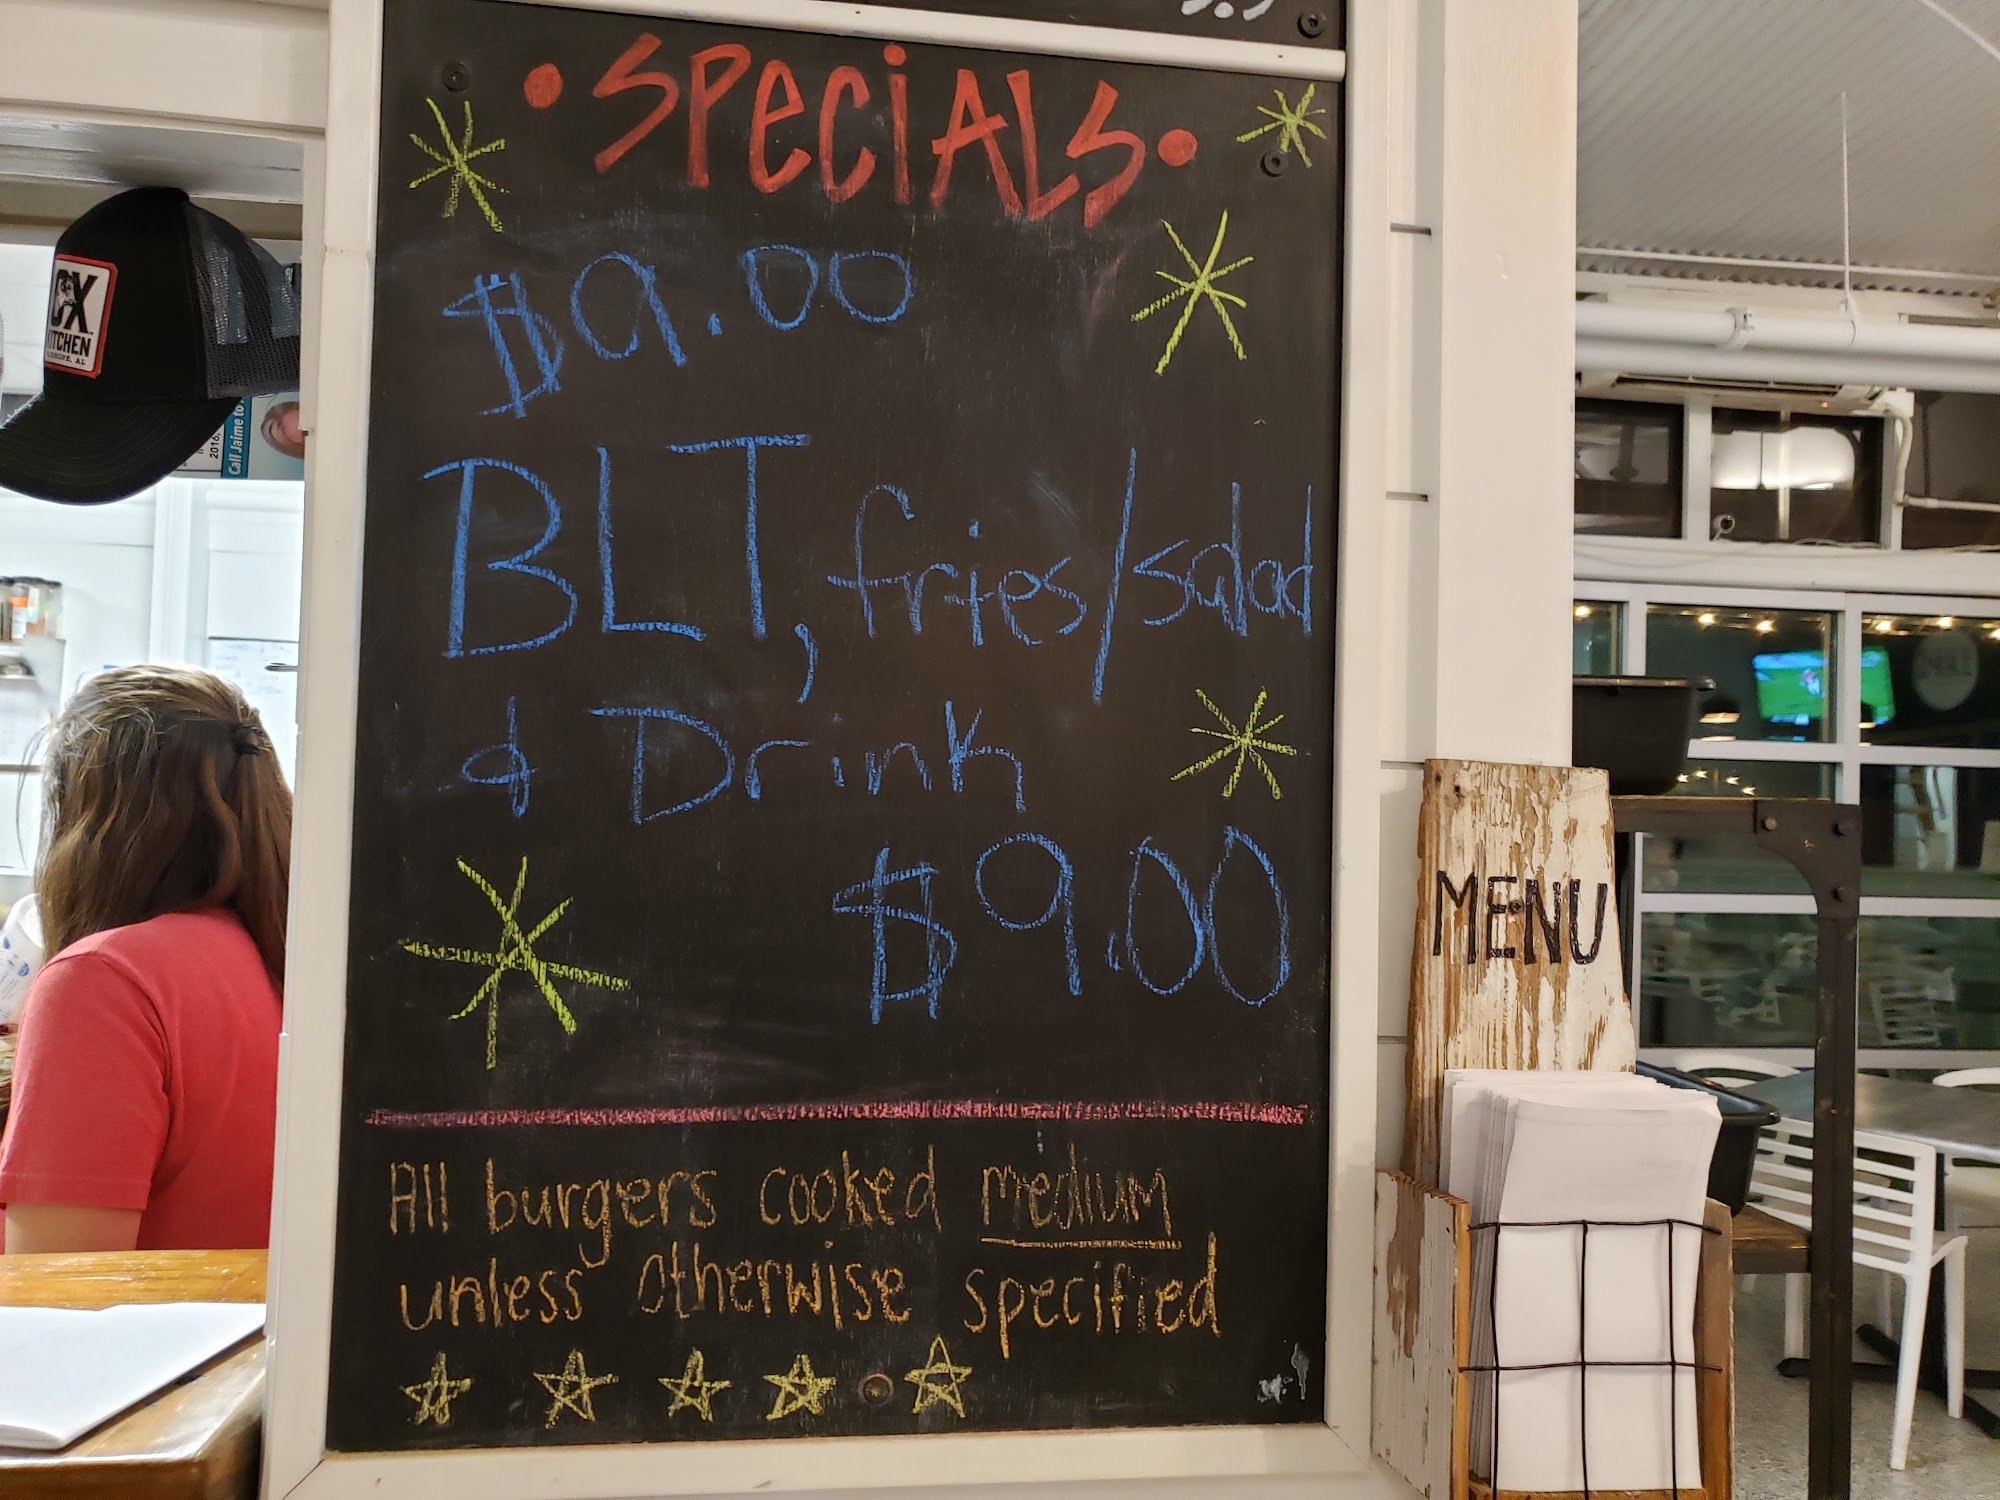 • SPECiALS •
$9.00
BLT, fries/salad
& Drink
$9.00
All burgers cooked medium
unless otherwise specified
MENU
KITCHEN
Call Jaime to
2016,